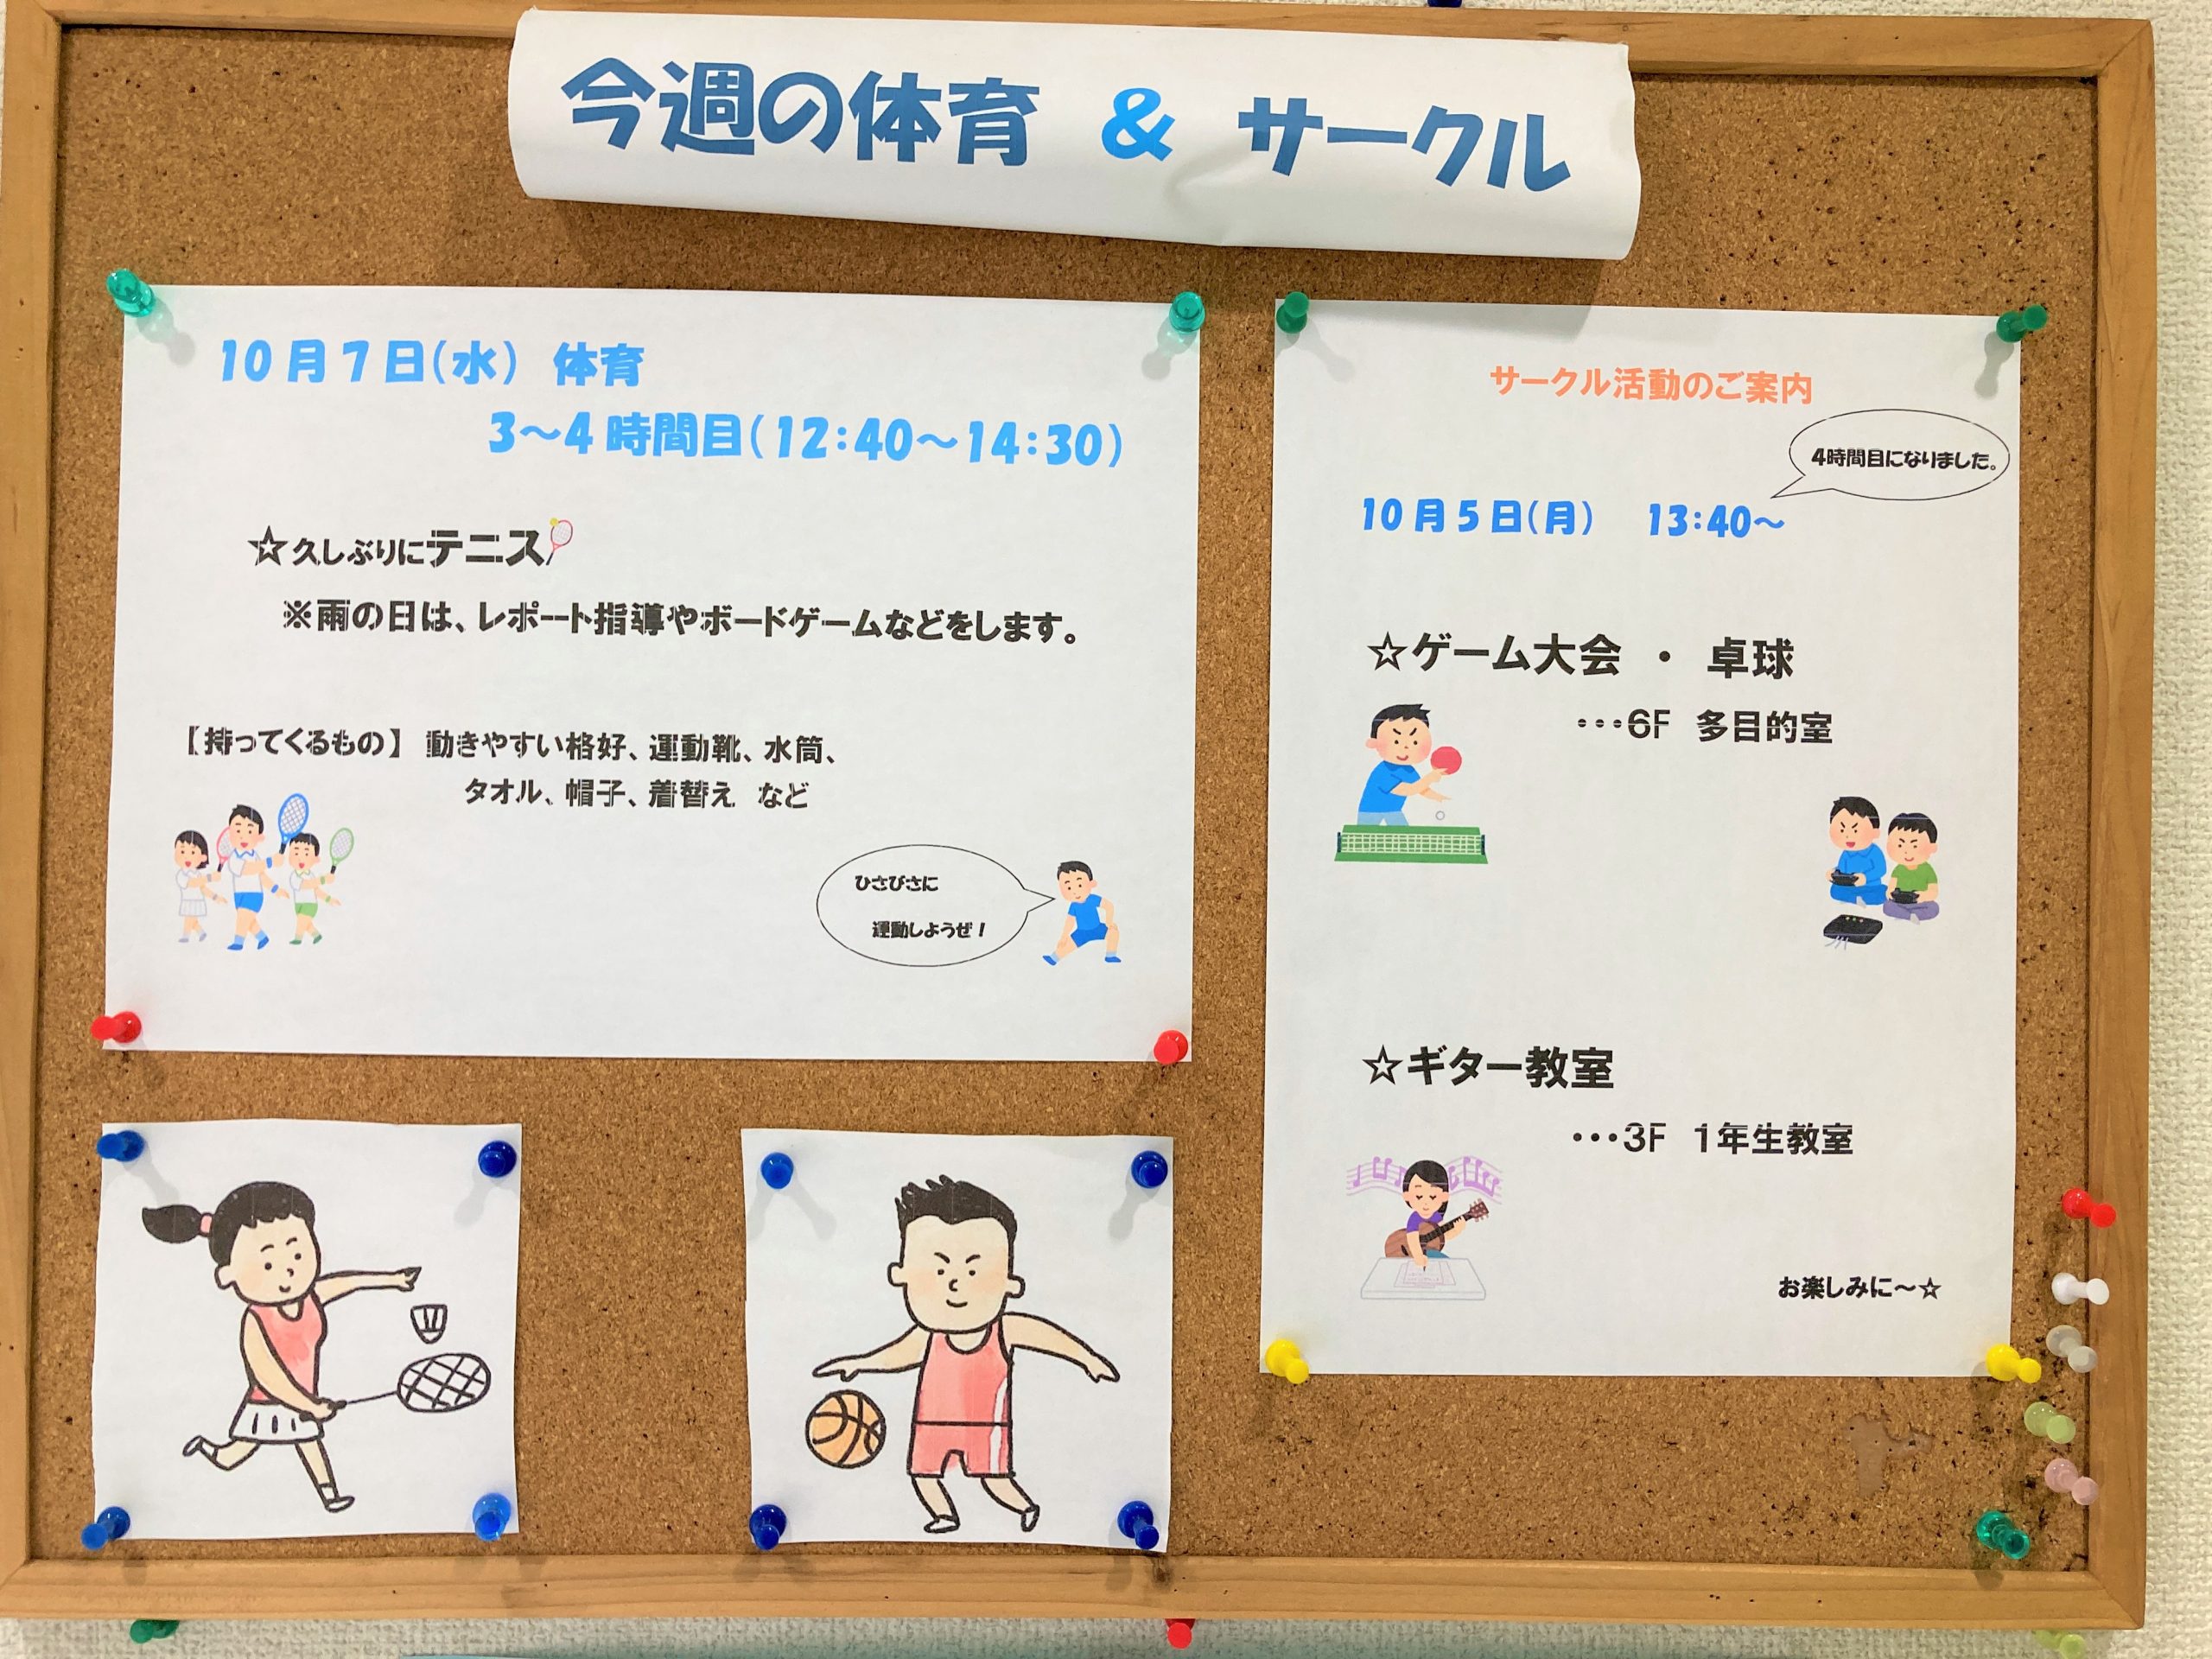 今週の体育 & サークル
10月7日(水) 体育
3～4時間目(12:40～14:30)
☆久しぶりにテニス
※雨の日は、レポート指導やボードゲームなどをします。
【持ってくるもの】 動きやすい格好、運動靴、水筒、
タオル、帽子、着替え など
ひさびさに
運動しようぜ！
サークル活動のご案内
4時間目になりました。
10月5日(月) 13:40～
☆ゲーム大会 ・ 卓球
･･･6F 多目的室
☆ギター教室
･･･3F 1年生教室
お楽しみに～☆